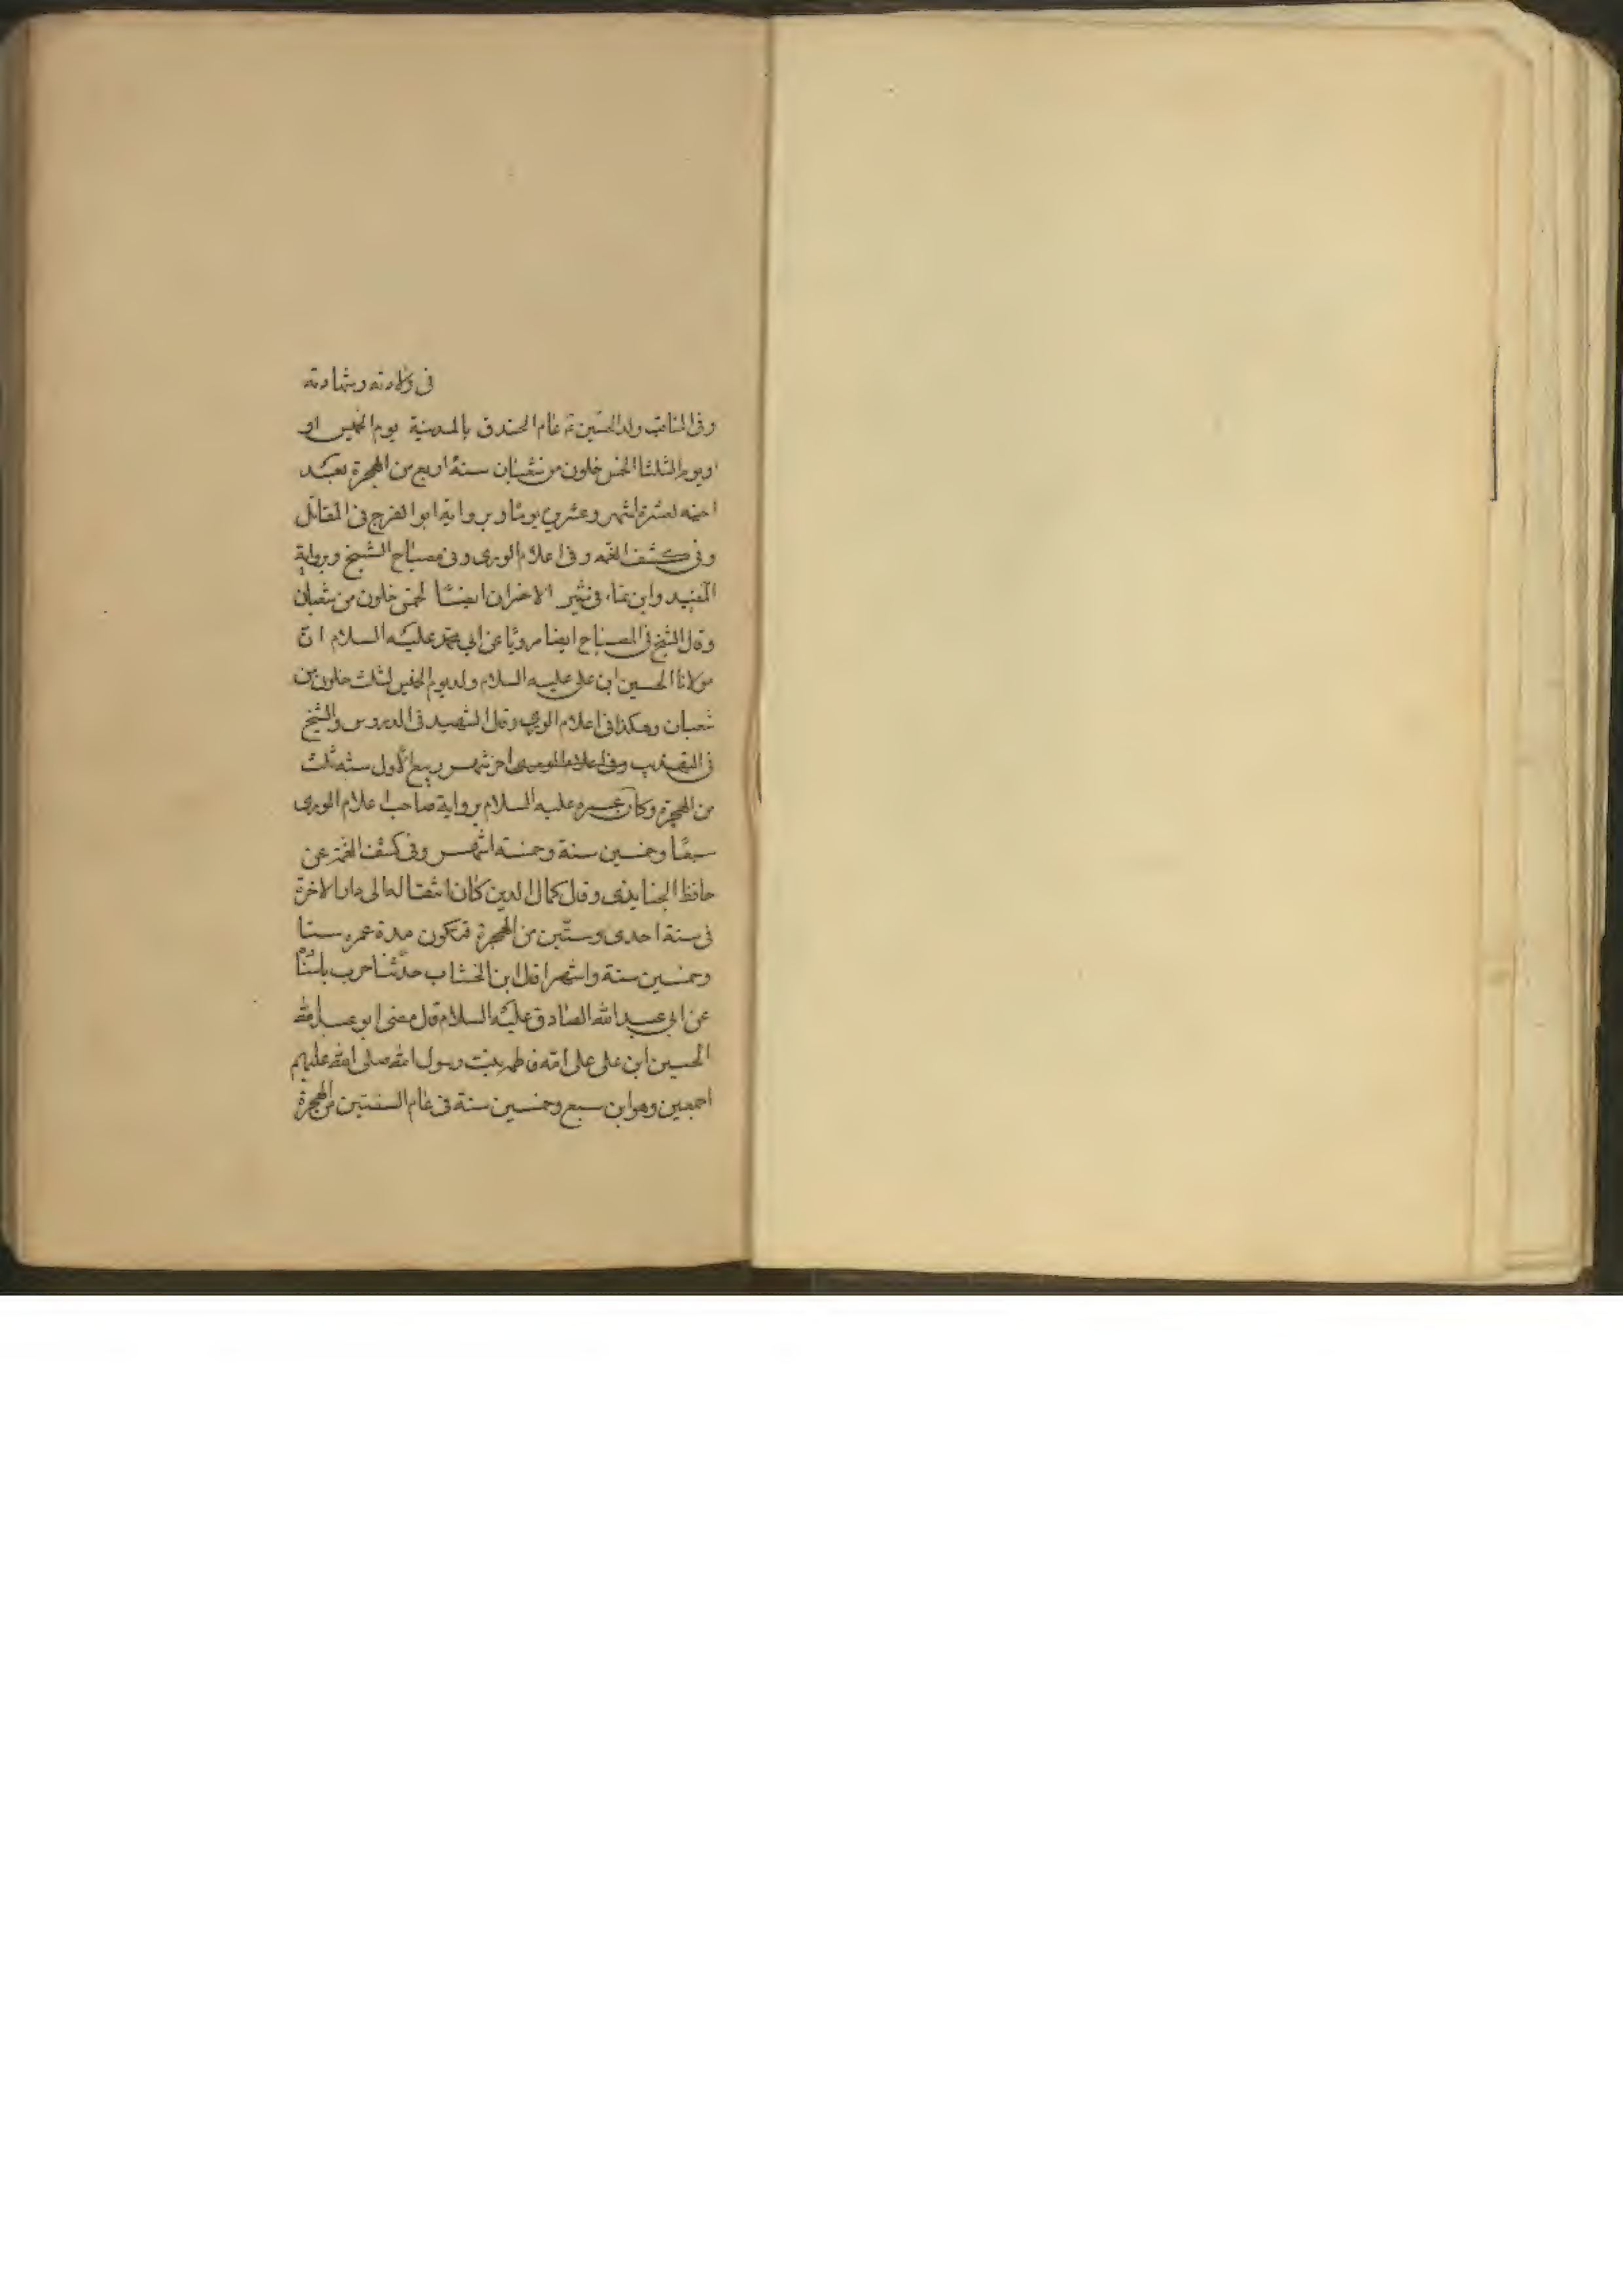 في ولادته وشهادته
وفي المناقب ولد الحسين ع عام الخندق بالمدينة يوم الخميس او
او يوم الثلثا لخمس خلون من شعبان سنة اربع من الهجرة بعد
اخيه لعشرة اشهر وعشرين يوما وبرواية ابو الفرج في المقاتل
وفي كشف الغمه وفي اعلام الورى وفي مصباح الشيخ وبرواية
المفيد وابن نما، في مثير الاحزان ايضا لخمس خلون من شعبان
وقال الشيخ في المصباح ايضا مرويا عن ابي محمد عليه السلام ان
مولانا الحسين ابن علي عليه السلام ولد يوم الخميس لثلث خلون من
شعبان وهكذا في اعلام الورى وقال الشهيد في الدروس والشيخ
في التهذيب وفي اعلام الورى اخر شهر ربيع الأول سنة ثلث
من الهجرة وكان عمره عليه السلام برواية صاحب اعلام الورى
سبعا وخمسين سنة وخمسة اشهر وفي كشف الغمة عن
حافظ الجنابذى وقال كمال الدين كان انتقاله الى دار الاخرة
في سنة احدى وستين من الهجرة فتكون مدة عمره ستا
وخمسين سنة واشهرا قال ابن الخشاب حدثنا حرب باسناده
عن ابي عبد الله الصادق عليه السلام قال مضى ابو عبد الله
الحسين ابن علي على امه فاطمه بنت رسول الله صلى الله عليهم
اجمعين وهو ابن سبع وخمسين سنة في عام الستين من الهجرة